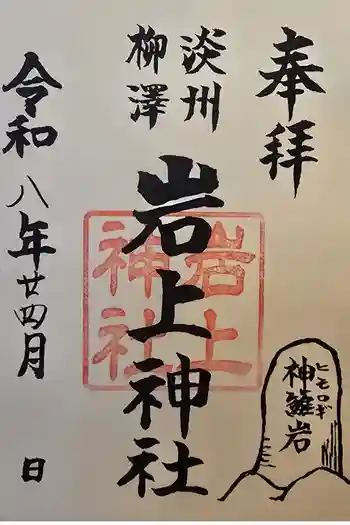 奉拝
淡州
柳澤
岩上神社
岩上
神社
ヒモロギ
神籬岩
令和八年廿四月
日